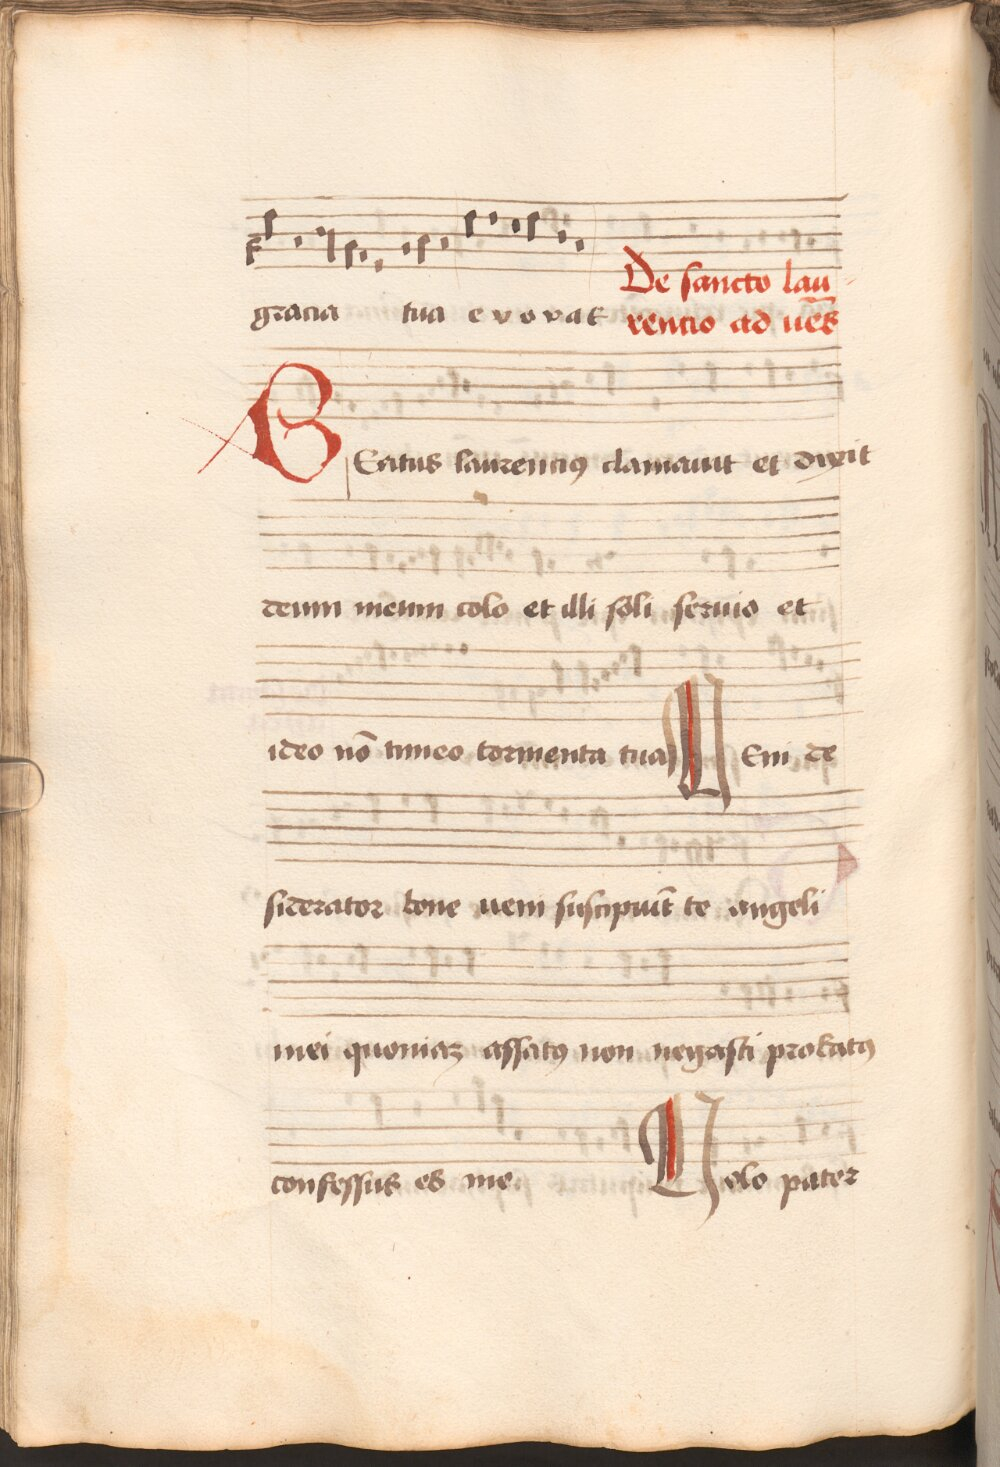 gracia tua e v o v a E
De sancto lau
rentio ad ues̄
BEatus laurenciꝰ clamauit et dixit
deum meum colo et illi soli seruio et
ideo nō timeo tormenta tua VEni de
siderator bone ueni suscipiūt te angeli
mei quoniaz assatꝰ non negasti probatꝰ
confessus es me Volo pater